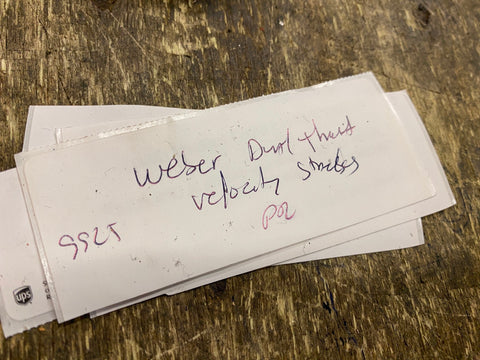 Weber Dual throat
velocity stacks
POR
9925
ups